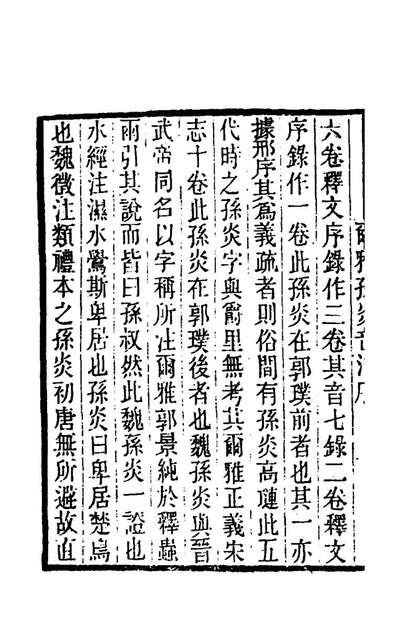 爾雅孫炎音注序
六卷釋文序錄作三卷其音七錄二卷釋文
序錄作一卷此孫炎在郭璞前者也其一亦
據邢序其爲義疏者則俗間有孫炎高璉此五
代時之孫炎字與爵里無考其爾雅正義宋
志十卷此孫炎在郭璞後者也魏孫炎與晉
武帝同名以字稱所注爾雅郭景純於釋蟲
雨引其說而皆曰孫叔然此魏孫炎一證也
水經注濕水鸒斯卑居也孫炎曰卑居楚烏
也魏徵注類禮本之孫炎初唐無所避故直